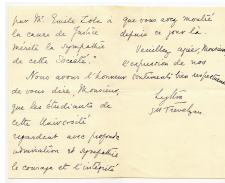 par M. Emile Zola à
la cause de Justice
mérité la sympathie
de cette Société."
Nous avons l'honneur
de vous dire, Monsieur,
que les Etudiants de
cette Université
regardent avec profonde
admiration et sympathie
le courage et l'intégrité
que vous avez montré
depuis ce jour là.
Veuillez agréer, Monsieur,
l'expression de nos
sentiments très respectueux
Lytton